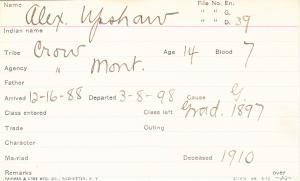 File No. En.
Alex. Upshaw " " G.
Indian name " " D. 39
Tribe Crow Age 14 Blood 7
Agency " Mont.
Father
Arrived 12-16-88 Departed 3-8-98 Cause G.
Class entered Class left Grad. 1897
Trade Outing
Character
Married Deceased 1910
Remarks over